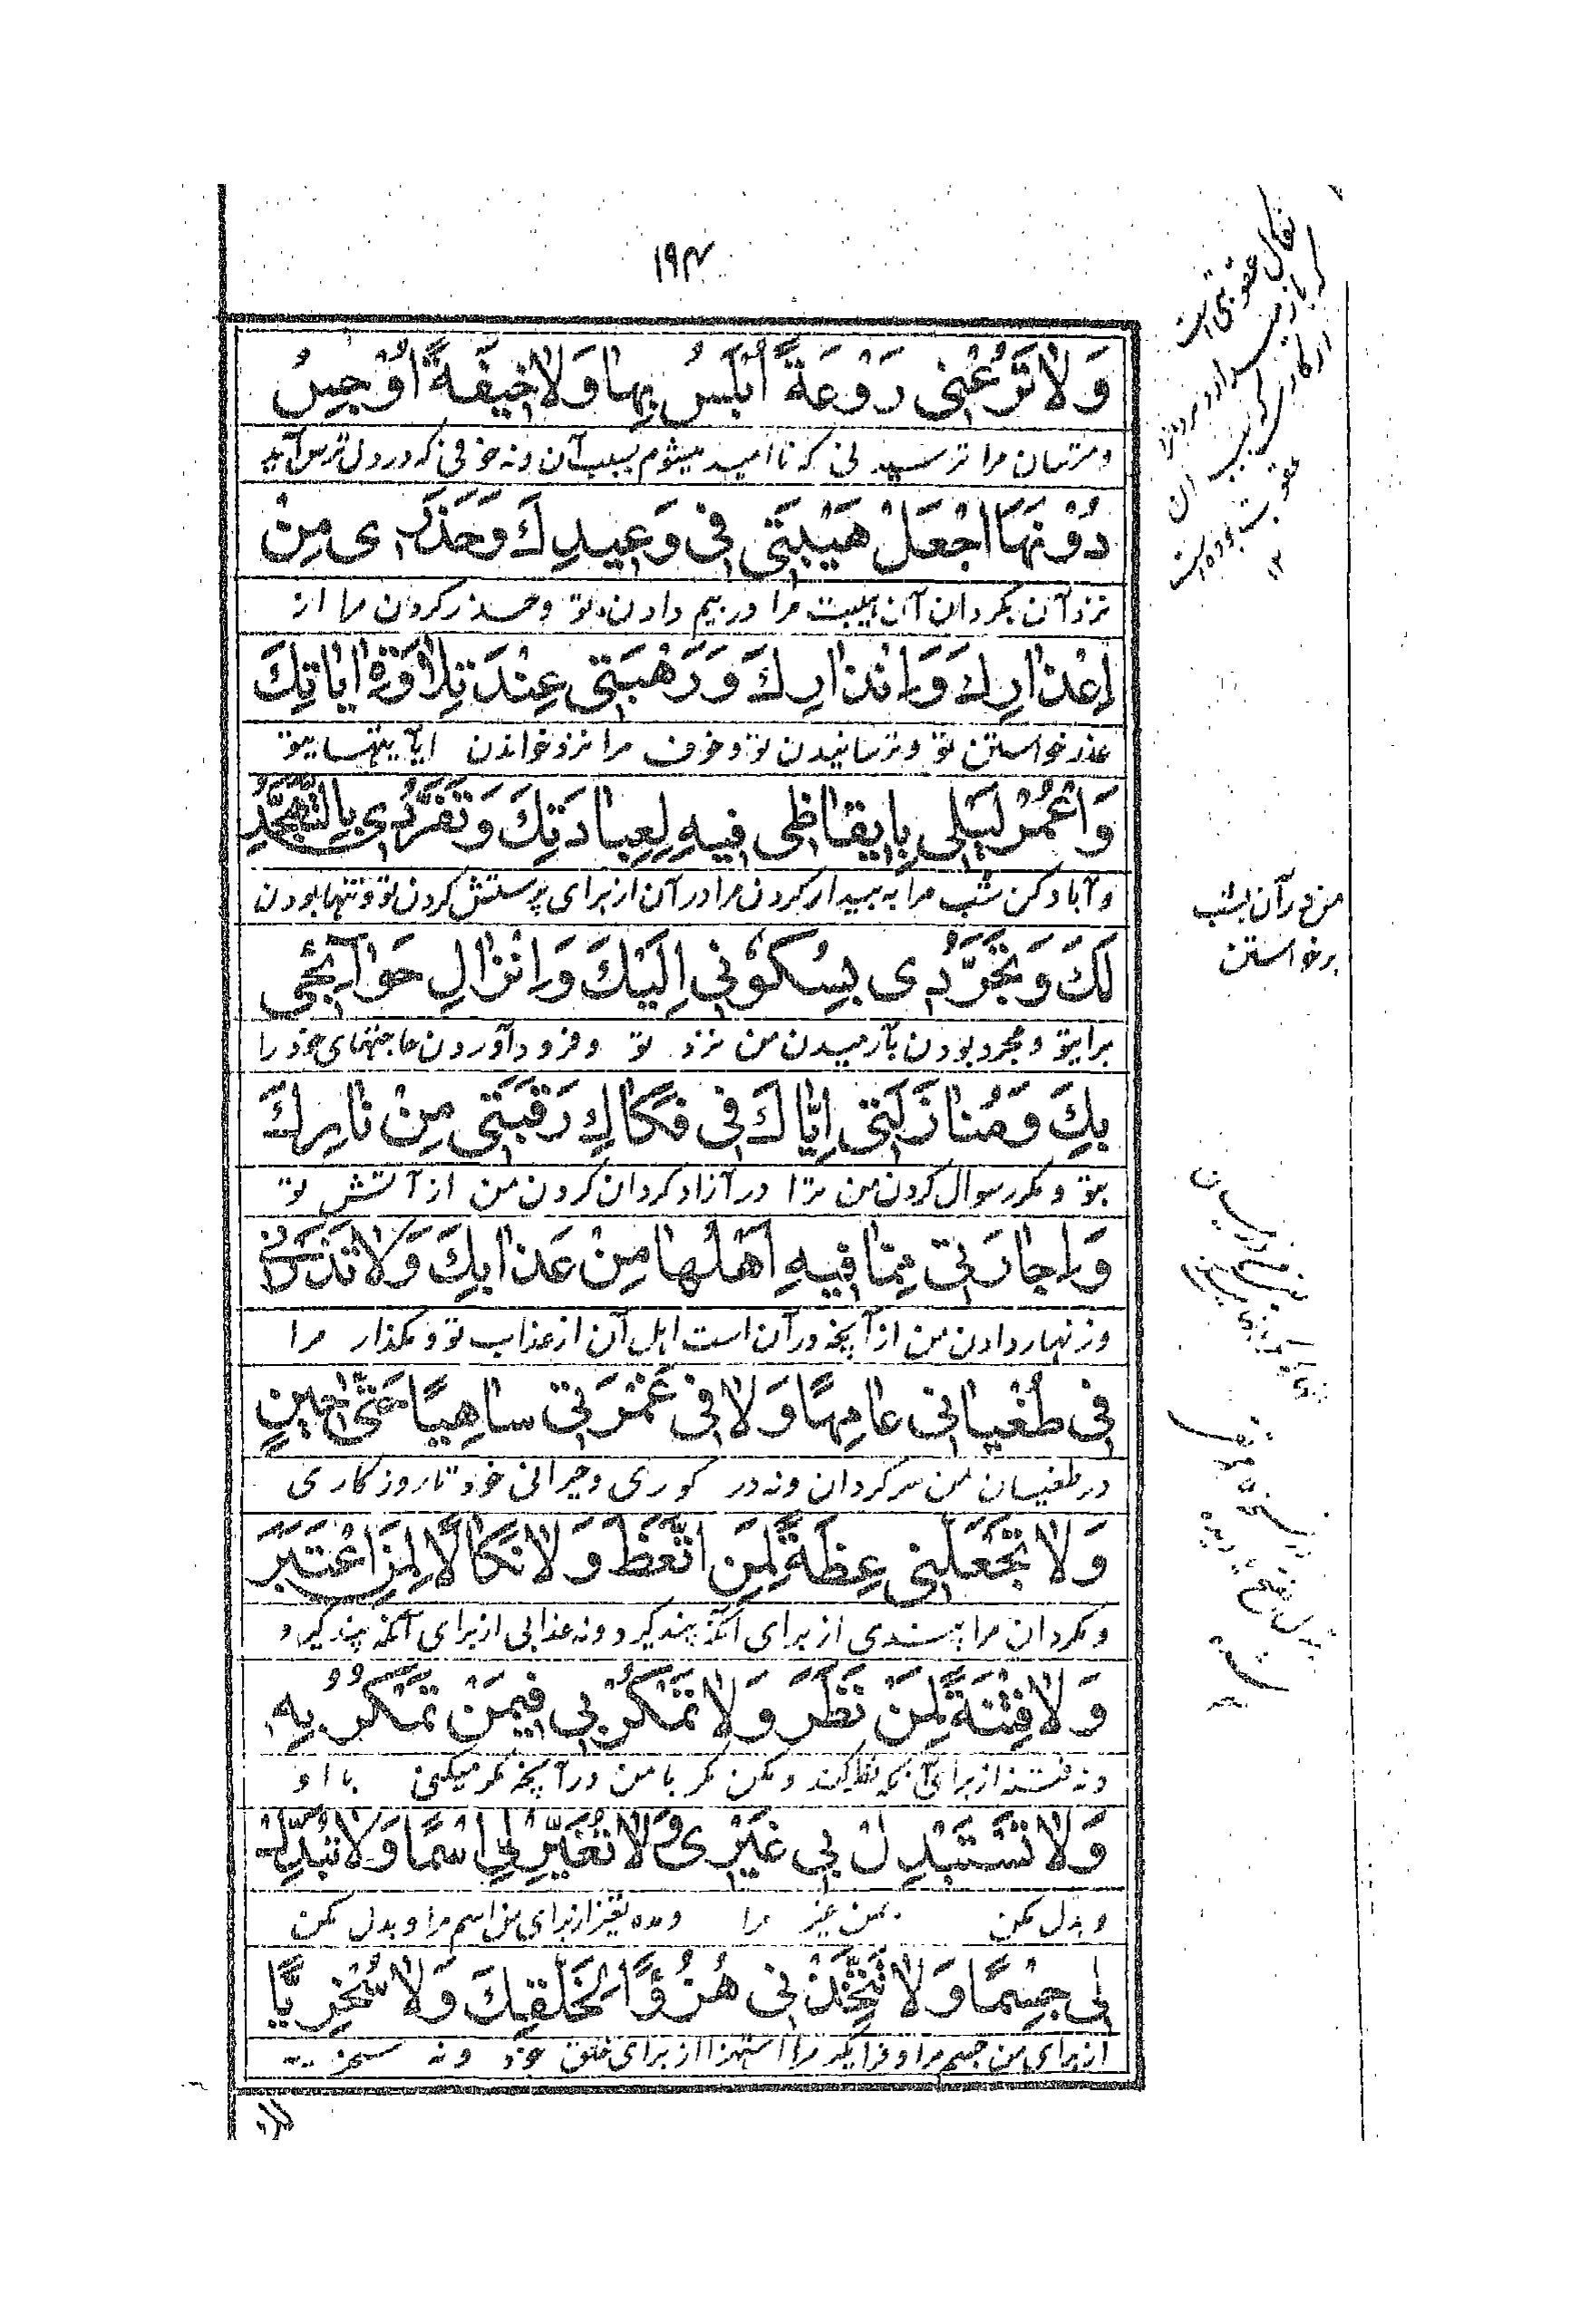 ۱۹۴
وَلَا تَرُعْنِى رَوْعَةً أُبْلِسُ بِهَا وَلَا خِيفَةً أُوْجِسُ
ومترسان مرا ترسیدنی که ناامید میشوم بسبب آن ونه خوفی که در دل ترس آید
دُوْنَهَا اجْعَلْ هَيْبَتِى فِى وَعِيدِكَ وَحَذَرِى مِنْ
نزد آن بگردان آن هیبت مرا در بیم دادن تو وحذر کردن مرا از
إِعْذَارِكَ وَإِنْذَارِكَ وَرَهْبَتِى عِنْدَ تِلَاوَةِ ايَاتِكَ
عذر خواستن تو وترسانیدن تو وخوف مرا نزد خواندن آیا یتهایتو
وَاعْمُرْ لَيْلِى بِإِيقَاظِى فِيهِ لِعِبَادَتِكَ وَتَفَرُّدِى بِالتَّهَجُّدِ
وآباد کن شب مرا به بیدار کردن مرا در آن از برای پرستش کردن تو وتنها بودن
لَكَ وَتَجَرُّدِى بِسُكُوْنِى إِلَيْكَ وَإِنْزَالِ حَوَآئِجِى
برایتو ومجرد بودن بآرمیدن من نزد تو وفرود آوردن حاجتهای خود را
بِكَ وَمُنَازَلَتِى إِيَّاكَ فِى فَكَاكِ رَقَبَتِى مِنْ نَارِكَ
بتو ومکرر سوال کردن من ترا در آزاد کردان کردن من از آتش تو
وَإِجَارَتِى مِمَّا فِيهِ أَهْلُهَا مِنْ عَذَابِكَ وَلَا تَذَرْنِى
وزنهار دادن من از آنچه در آن است اهل آن از عذاب تو ومگذار مرا
فِى طُغْيَانِى عَامِهًا وَلَا فِى غَمْرَتِى سَاهِيًا حَتَّى حِينٍ
در طغیان من سرگردان ونه در کوری وحیرانی خود تا روزگاری
وَلَا تَجْعَلْنِى عِظَةً لِمَنِ اتَّعَظَ وَلَا نَكَالًا لِمَنِ اعْتَبَرَ
ومگردان مرا پندی از برای آنکه پند گیرد ونه عذابی از برای آنکه پند گیرد
وَلَا فِتْنَةً لِمَنْ نَظَرَ وَلَا تَمْكُرْ بِى فِيمَنْ تَمْكُرُ بِهِ
ونه فتنه از برای آنکه نظر کند ومکن مکر با من در آنچه مکر میکنی با او
وَلَا تَسْتَبْدِلْ بِى غَيْرِى وَلَا تُغَيِّرْ لِى اسْمًا وَلَا تُبَدِّلْ
وبدل مکن بمن غیر مرا ومده تغیر از برای من اسم مرا وبدل مکن
لِى جِسْمًا وَلَا تَتَّخِذْنِى هُزُوًا لِخَلْقِكَ وَلَا سُخْرِيًّا
از برای من جسم مرا وفرا مگیر مرا استهزا از برای خلق خود ونه سخر
من در آن بشب
برخواستن